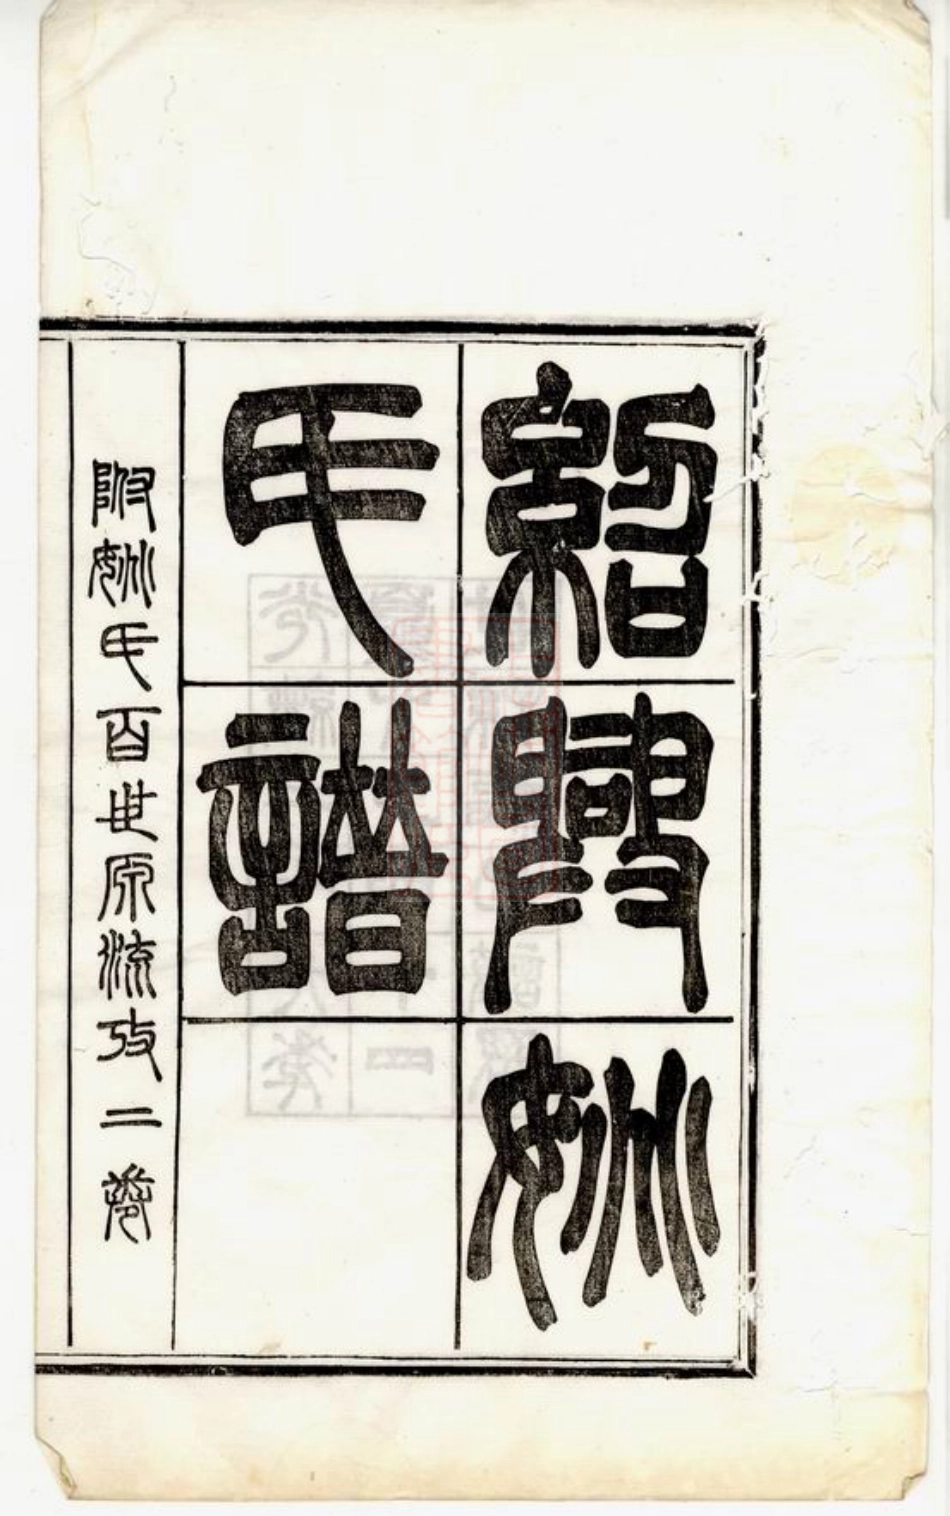 紹興姚
氏譜
附姚氏百世原流攷二卷